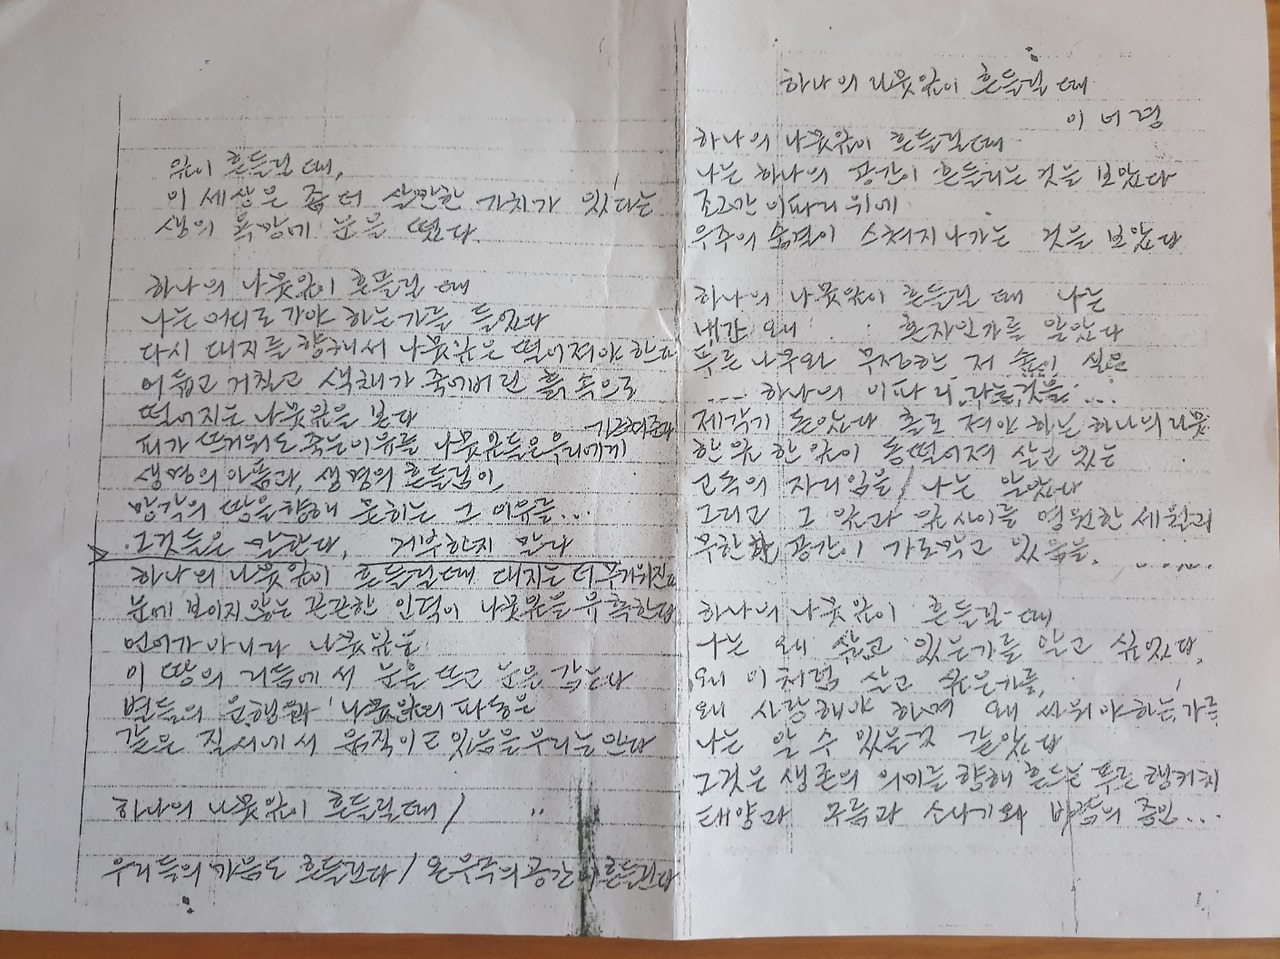 하나의 나뭇잎이 흔들릴 때
이어령
하나의 나뭇잎이 흔들릴 때
나는 하나의 공간이 흔들리는 것을 보았다
조그만 이파리 위에
우주의 숨결이 스쳐지나가는 것을 보았다
하나의 나뭇잎이 흔들릴 때 나는
왜 혼자인가를 알았다
푸른 나무와 무성한 저 숲이 실은
... 하나의 이파리라는 것을 ...
제각기 돋았다 홀로 져야 하는 하나의 나뭇
한 잎 한 잎이 동떨어져 살고 있는
고독의 자리임을 / 나는 알았다
그리고 그 잎과 잎 사이를 영원한 세월과
무한한 공간이 가로막고 있음을.
하나의 나뭇잎이 흔들릴 때
나는 왜 살고 있는가를 알고 싶었다.
왜 이처럼 살고 싶은가를,
왜 사랑해야 하며 왜 싸워야 하는가를
나는 알 수 있을 것 같았다
그것은 생존의 의미를 향해 흔드는 푸른 행커치
태양과 구름과 소나기와 바람의 증인...
잎이 흔들릴 때,
이 세상은 좀 더 살만한 가치가 있다는
생의 욕망에 눈을 떴다.
하나의 나뭇잎이 흔들릴 때
나는 어디로 가야 하는가를 들었다
다시 대지를 향해서 나뭇잎은 떨어져야 한다
어둡고 거칠고 색채가 죽어버린 흙 속으로
떨어지는 나뭇잎을 본다
가르쳐준다
피가 뜨거워도 죽는 이유를 나뭇잎들은 우리에게
생명의 아픔과, 생명의 흔들림이
망각의 땅을 향해 묻히는 그 이유를...
그것들은 말한다, 거부하지 말라
하나의 나뭇잎이 흔들릴 때 대지는 더 무거워진다
눈에 보이지 않는 끈끈한 인력이 나뭇잎을 유혹한다
언어가 아니라 나뭇잎은
이 땅의 리듬에서 눈을 뜨고 눈을 감는다
별들의 운행과 나뭇잎의 파동은
같은 질서에서 움직이고 있음을 우리는 안다
하나의 나뭇잎이 흔들릴 때 /
우리들의 마음도 흔들린다 / 온 우주의 공간이 흔들린다